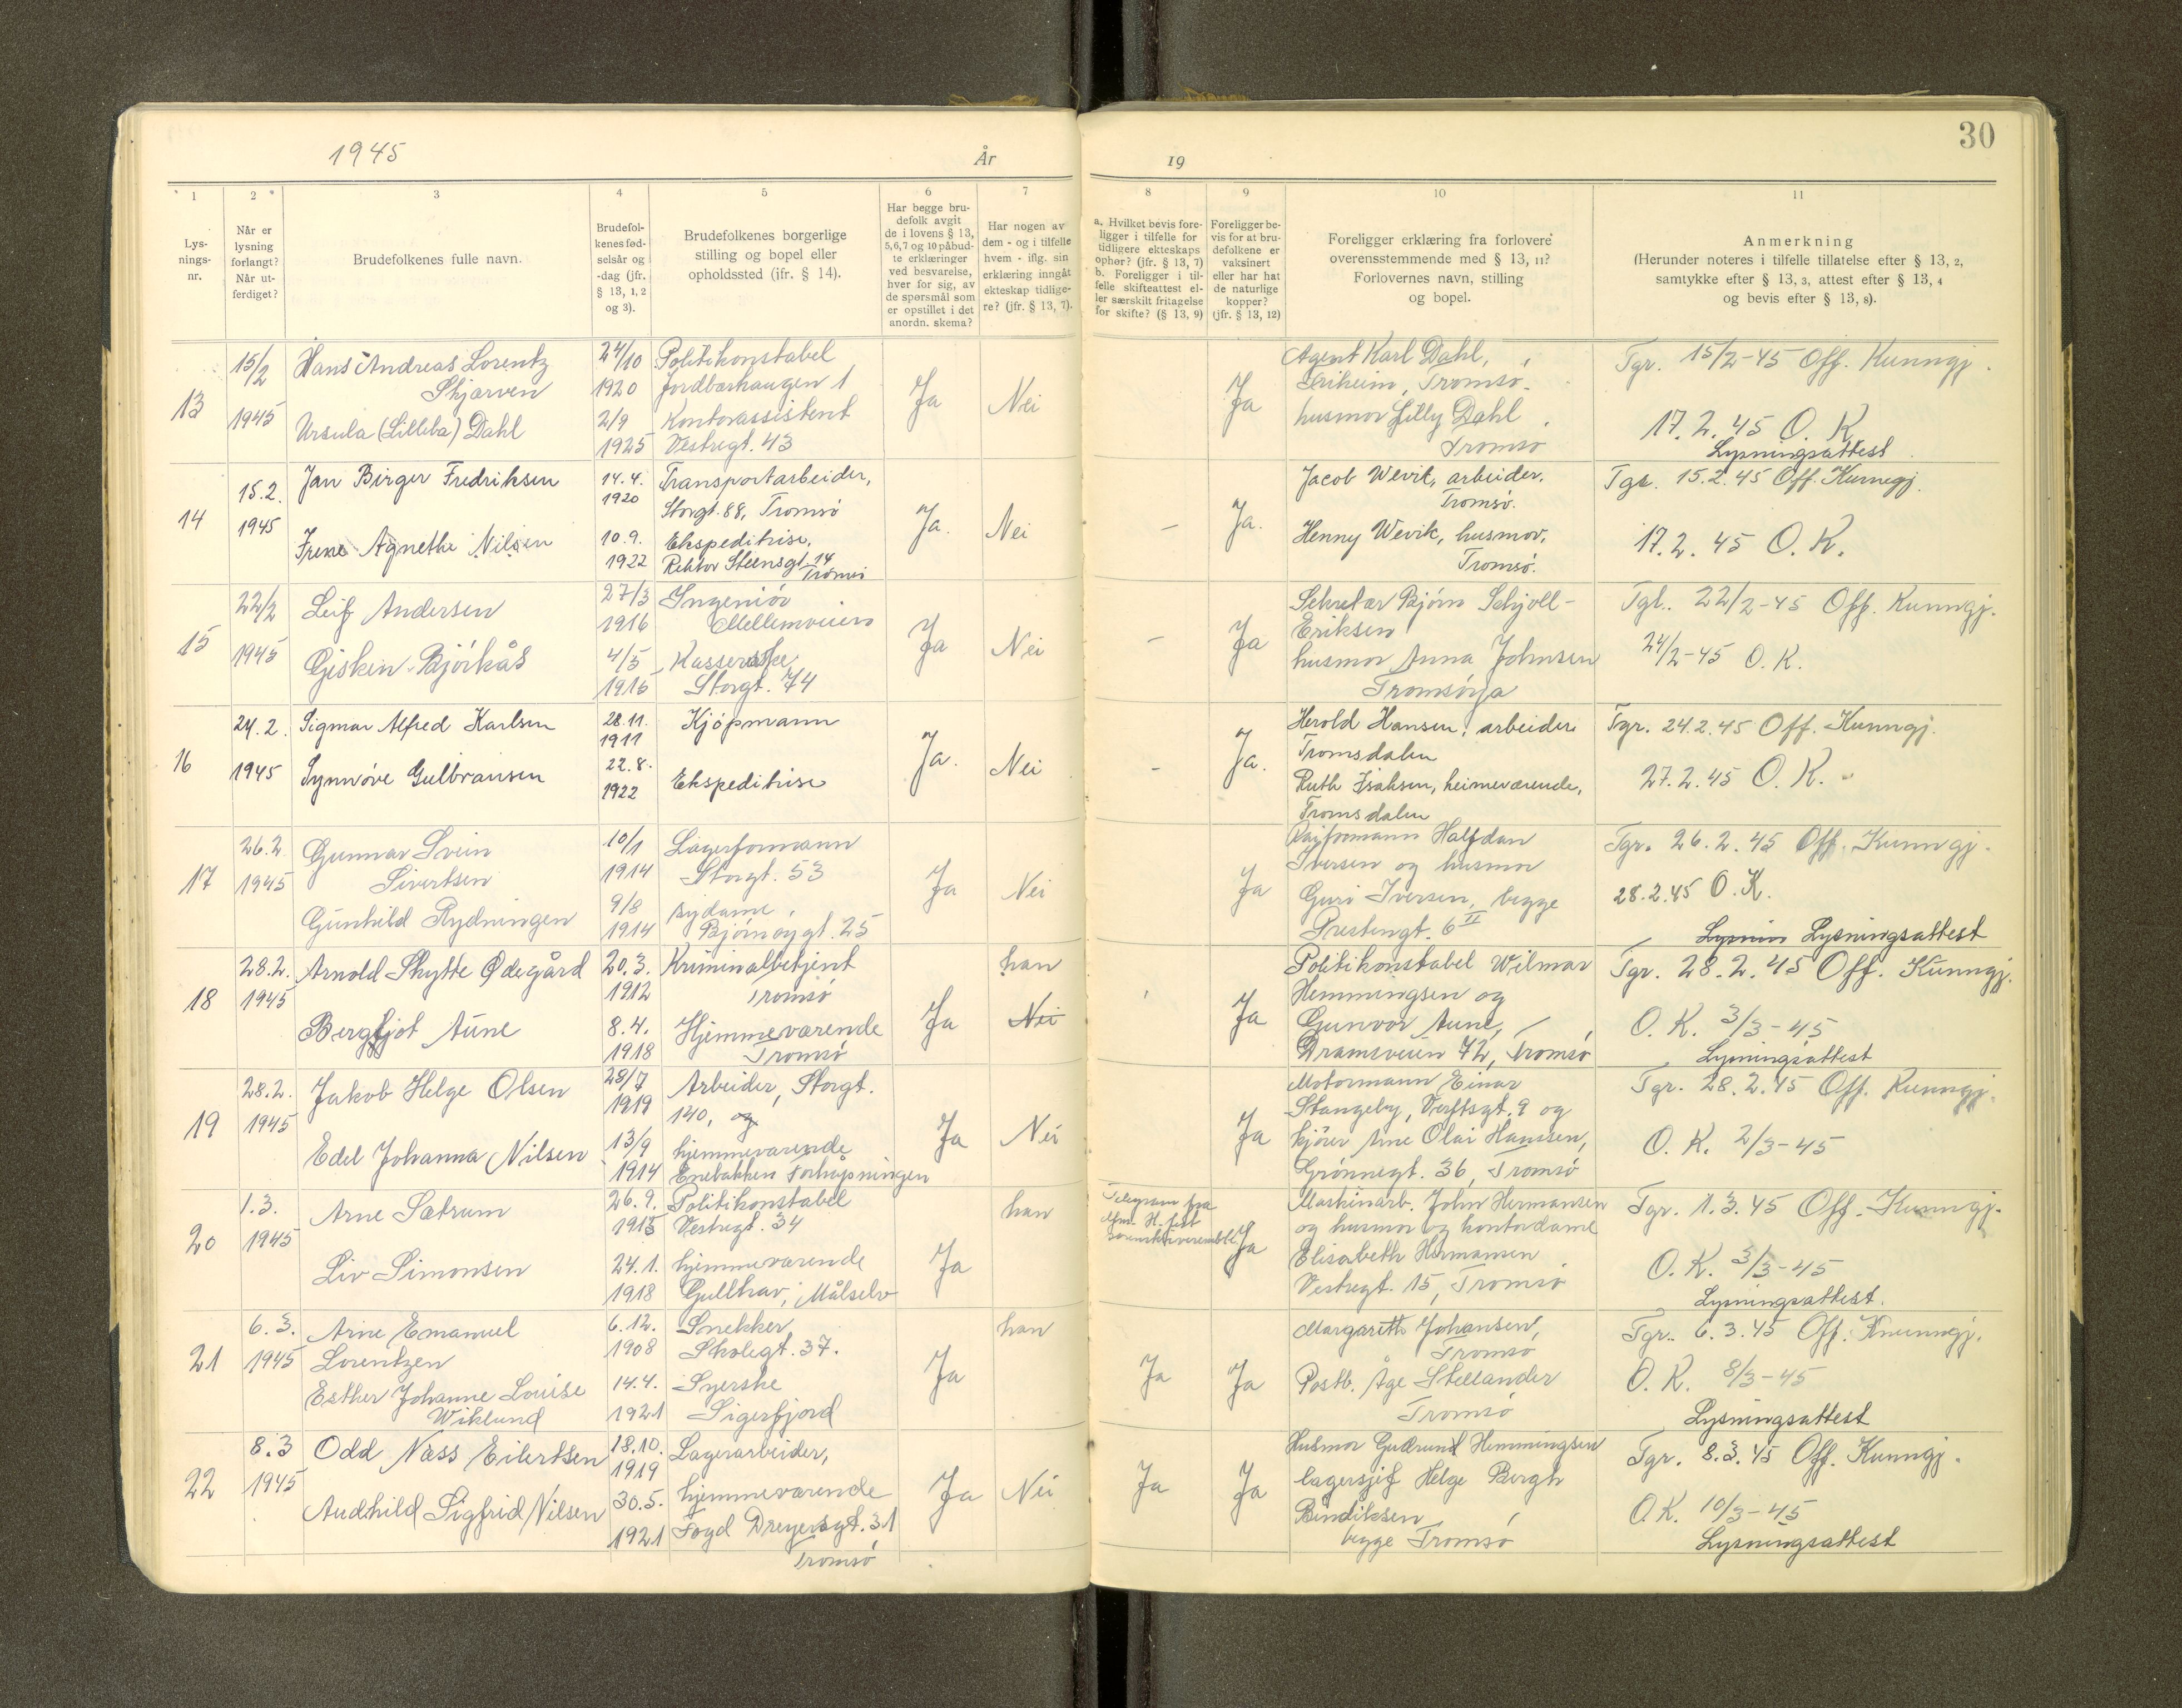 1945
År
19
30
1
2
3
4
5
6
7
8
9
10
11
Lys-
nings-
nr.
Når er
lysning
forlangt?
Når ut-
ferdiget?
Brudefolkenes fulle navn.
Brudefol-
kenes fød-
selsår og
-dag (jfr.
§ 13, 1, 2
og 3).
Brudefolkenes borgerlige
stilling og bopel eller
opholdssted (jfr. § 14).
Har begge bru-
defolk avgit
de i lovens § 13,
5,6,7 og 10 påbud-
te erklæringer
ved besvarelse,
hver for sig, av
de spørsmål som
er opstillet i det
anordn. skema?
Har nogen av
dem - og i tilfelle
hvem - iflg. sin
erklæring inngåt
ekteskap tidlige-
re? (jfr. § 13, 7).
a. Hvilket bevis fore-
ligger i tilfelle for
tidligere ekteskaps
ophør? (jfr. § 13, 7)
b. Foreligger i til-
felle skifteattest el-
ler særskilt fritagelse
for skifte? (§ 13, 9)
Foreligger be-
vis for at bru-
defolkene er
vaksinert
eller har hat
de naturlige
kopper?
(jfr. § 13, 12)
Foreligger erklæring fra forlovere
overensstemmende med § 13, 11?
Forlovernes navn, stilling
og bopel.
Anmerkning
(Herunder noteres i tilfelle tillatelse efter § 13, 2,
samtykke efter § 13, 3, attest efter § 13, 4
og bevis efter § 13, 8).
13
15/2
1945
Hans Andreas Lorentz
Skjærven
Ursula (Lilleba) Dahl
24/10
1920
2/9
1925
Politikonstabel
Jordbærhaugen 1
Kontorassistent
Vestregt. 43
Ja
Nei
Ja
Agent Karl Dahl,
Friheim, Tromsø.
husmor Lilly Dahl
Tromsø
Tgr. 15/2-45 Off. Kunngj.
17.2.45 O.K.
Lysningsattest
14
15.2.
1945
Jan Birger Fredriksen
Irene Agnethe Nilsen
14.4.
1920
10.9.
1922
Transportarbeider,
Storgt. 88, Tromsø
Ekspeditrise,
Rektor Steensgt. 14
Tromsø
Ja.
Nei
–
Ja.
Jacob Wevik, arbeider,
Tromsø.
Henny Wevik, husmor,
Tromsø.
Tgr. 15.2.45 Off. Kunngj.
17.2.45 O.K.
15
22/2
1945
Leif Andersen
Gisken Bjørkås
27/3
1916
4/5
1915
Ingeniør
Mellemveien
Kasserske
Storgt. 74
Ja
Nei
–
Ja
Sekretær Bjørn Schjoll-
Eriksen
husmor Anna Johnsen
Tromsøya
Tgr. 22/2-45 Off. Kunngj.
24/2-45 O.K.
16
24.2.
1945
Sigmar Alfred Karlsen
Synnøve Gulbransen
28.11.
1911
22.8.
1922
Kjøpmann
Ekspeditrise
Ja.
Nei
–
Ja.
Herold Hansen, arbeider
Tromsdalen
Ruth Isaksen, heimeværende,
Tromsdalen
Tgr. 24.2.45 Off. Kunngj.
27.2.45 O.K.
17
26.2
1945
Gunnar Svein
Sivertsen
Gunhild Rydningen
10/1
1914
9/8
1914
Lagerformann
Storgt. 53
sydame,
Bjørnøygt. 25
Ja
Nei
Ja
Halfdan
Iversen og husmor
Guri Iversen, begge
Prestengt. 6 II
Tgr. 26.2.45 Off. Kunngj.
28.2.45 O.K.
Lysnin Lysningsattest
18
28.2.
1945
Arnold Skytte Ødegård
Bergljot Aune
20.3.
1912
8.4.
1918
Kriminalbetjent
Tromsø
Hjemmeværende
Tromsø
Ja
han
Nei
Ja
Politikonstabel Wilmar
Hemmingsen og
Gunvor Aune,
Dramsveien 72, Tromsø
Tgr. 28.2.45 Off. Kunngj.
O.K. 3/3-45
Lysningsattest
19
28.2.
1945
Jakob Helge Olsen
Edel Johanna Nilsen
28/7
1919
13/9
1914
Arbeider, Storgt.
140, og
hjemmeværende
Enebakken Forhåpningen
Ja
Nei
Ja
Motormann Einar
Stangeby, Verftsgt. 9 og
kjører Arne Olai Hanssen,
Grønnegt. 36, Tromsø
Tgr. 28.2.45 Off. Kunngj.
O.K. 2/3-45
20
1.3.
1945
Arne Sætrum
Liv Simonsen
26.9.
1915
24.1.
1918
Politikonstabel
Vestregt. 34
hjemmeværende
Gullhav, Målselv
Ja
han
Telegram fra
Ja
Maskinarb. John Hermansen
og husmor og kontordame
Elisabeth Hermansen
Vestregt. 15, Tromsø
Tgr. 1.3.45 Off. Kunngj.
O.K. 3/3-45
Lysningsattest.
21
6.3.
1945
Arne Emanuel
Lorentzen
Esther Johanne Louise
Wiklund
6.12.
1908
14.4.
1921
Snekker
Skolegt. 37.
Syerske
Sigerfjord
Ja
han
Ja
Ja
Margareth Johansen,
Tromsø
Postb. Åge Stellander
Tromsø
Tgr. 6.3.45 Off. Knunngj.
O.K. 8/3-45
Lysningsattest
22
8.3
1945
Odd Næss Eilertsen
Audhild Sigfrid Nilsen
18.10.
1919
30.5.
1921
Lagerarbeider,
hjemmeværende
Fogd Dreyersgt. 31
Tromsø
Ja
Nei
Ja
Ja
Husmor Gudrund Hemmingsen
lagersjef Helge Bergh
Bendiksen
begge Tromsø
Tgr. 8.3.45 Off. Kunngj.
O.K. 10/3-45
Lysningsattest